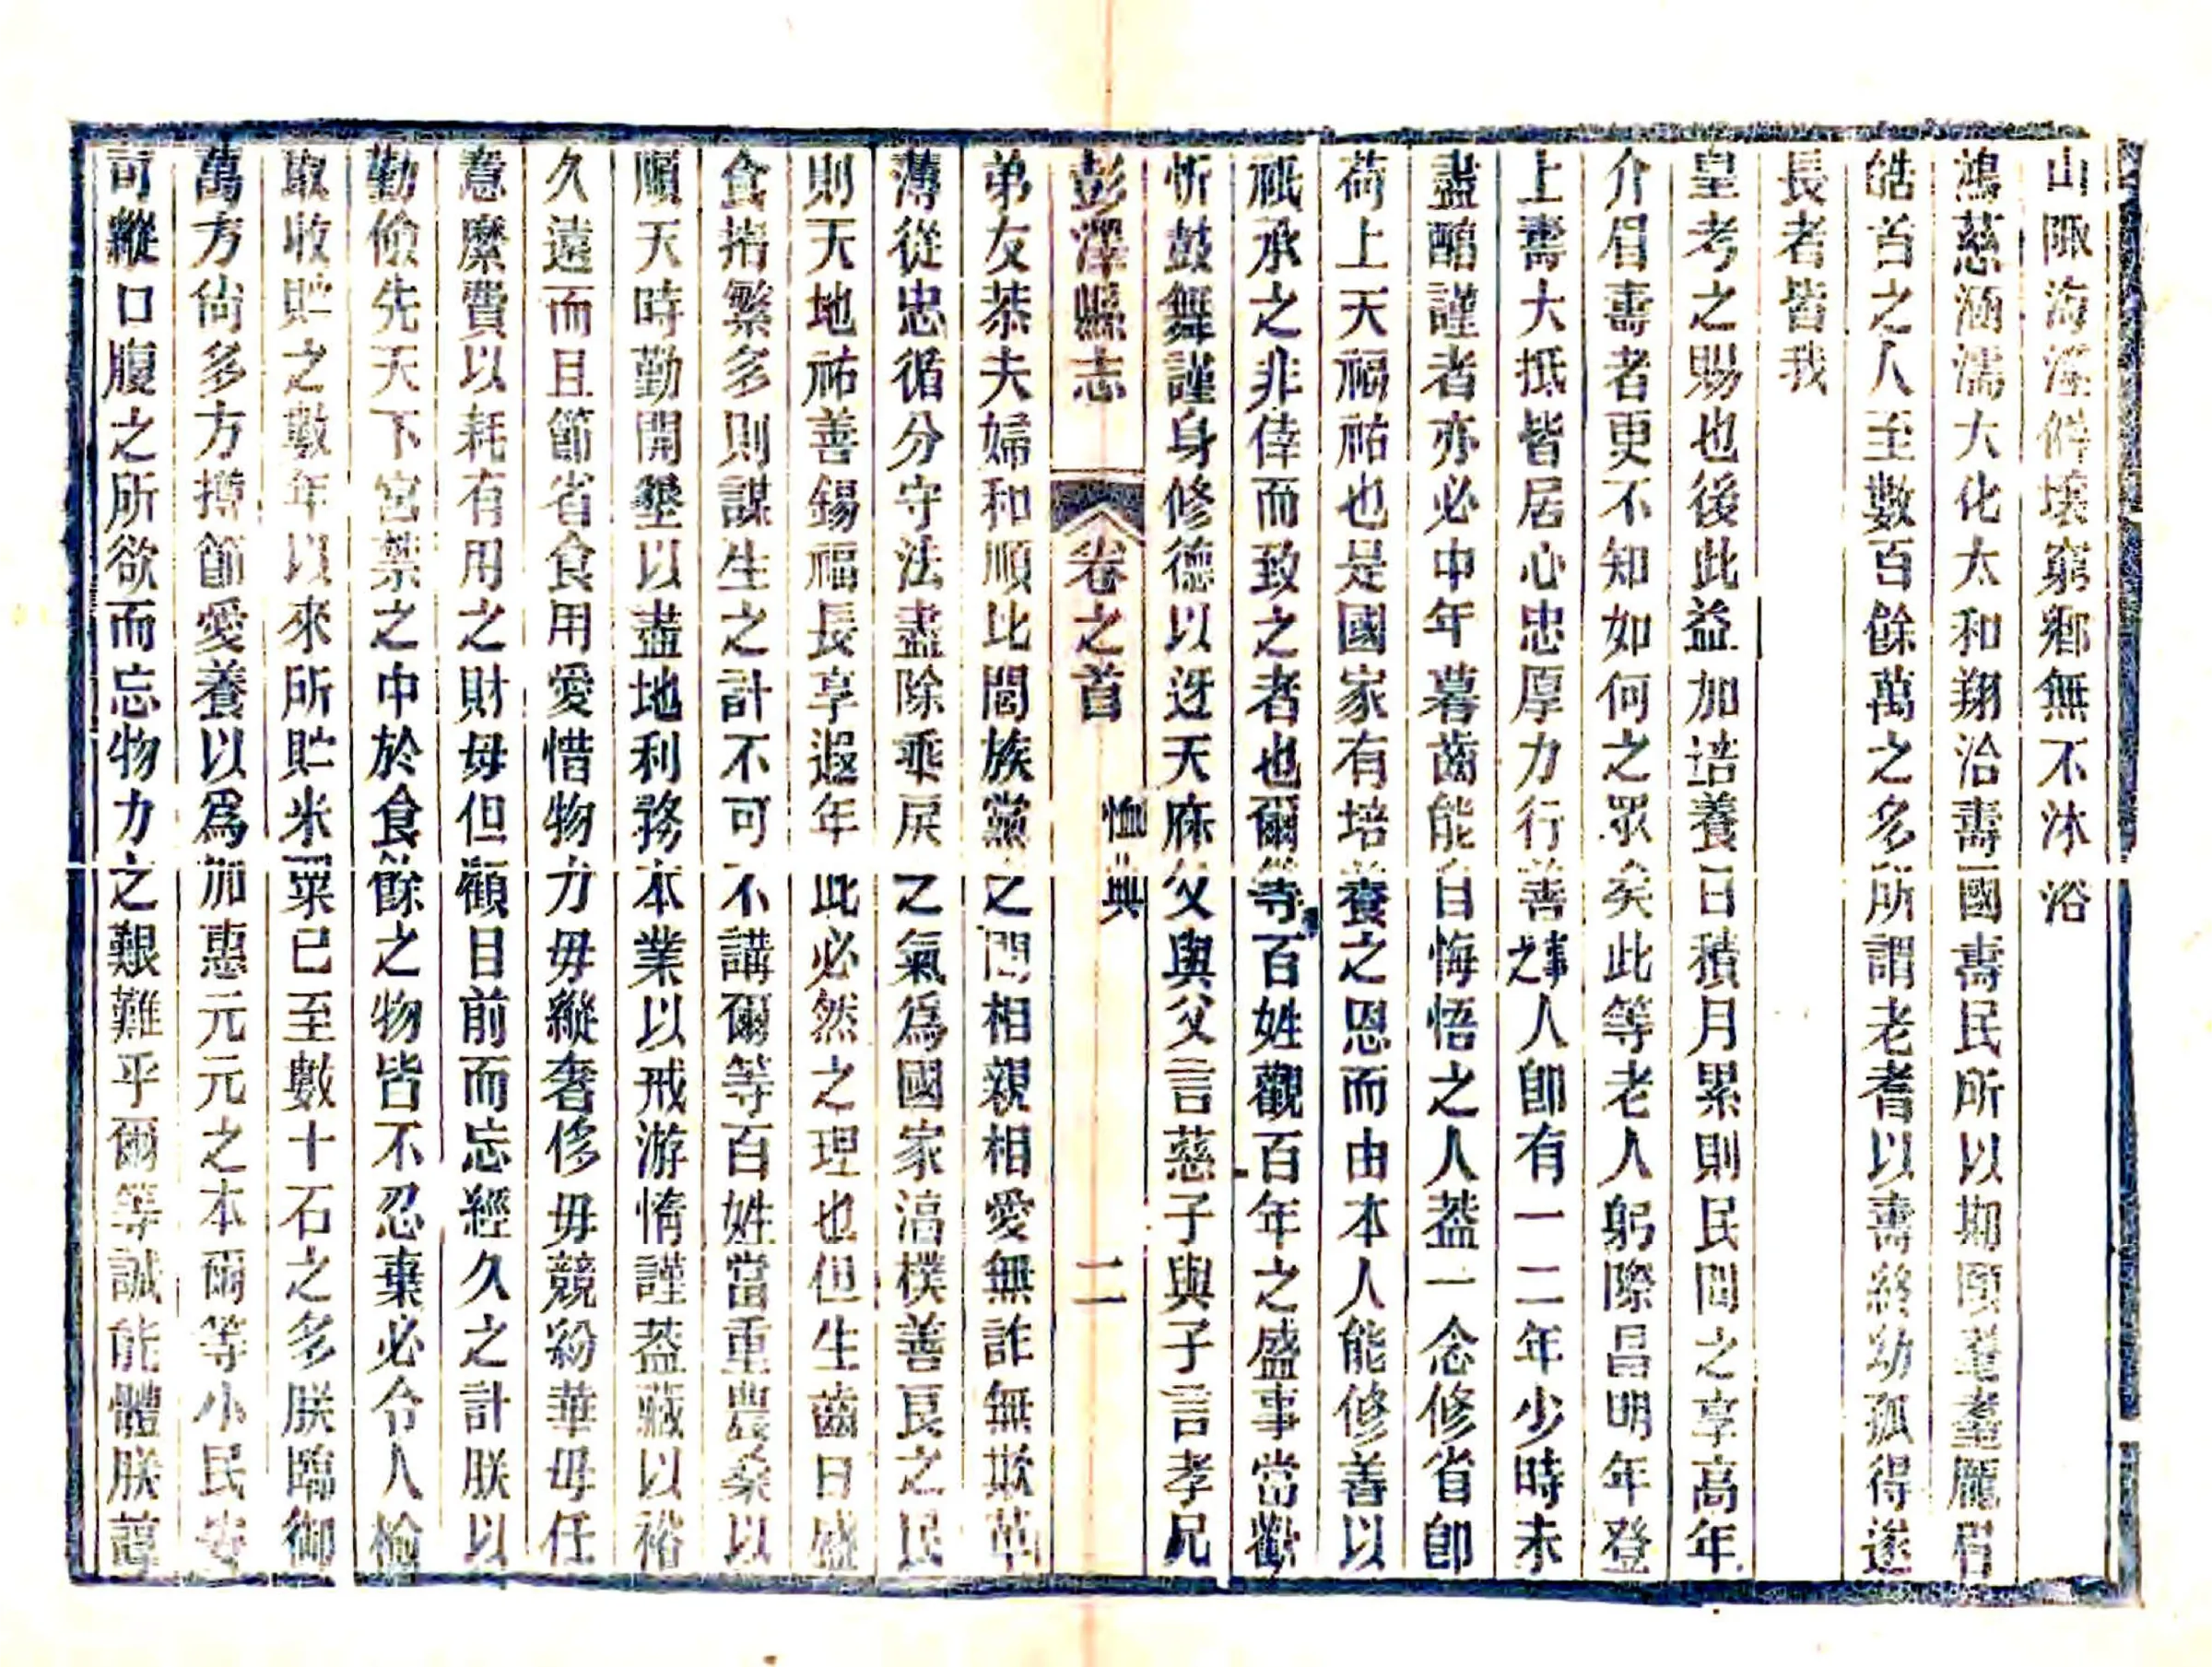 山陬海澨僻壤窮鄉無不沐浴
鴻慈涵濡大化太和翔洽壽國壽民所以期頤耄耋龐眉
皓首之人至數百餘萬之多所謂老者以壽終幼孤得遂
長者皆我
皇考之賜也後此益加培養日積月累則民間之享高年
介眉壽者更不知如何之眾矣此等老人躬際昌明年登
上壽大抵皆居心忠厚力行善事之人卽有一二年少時未
盡醕謹者亦必中年暮齒能自悔悟之人葢一念修省卽
荷上天福祐也是國家有培養之恩而由本人能修善以
祇承之非倖而致之者也爾等百姓觀百年之盛事當歡
忻鼓舞謹身修德以迓天庥父與父言慈子與子言孝兄
彭澤縣志
卷之首
恤典
二
弟友恭夫婦和順比閭族黨之間相親相愛無詐無欺革
薄從忠循分守法盡除乖戾之氣爲國家淳樸善良之民
則天地祐善錫福長享遐年此必然之理也但生齒日盛
食指繁多則謀生之計不可不講爾等百姓當重農桑以
順天時勤開墾以盡地利務本業以戒游惰謹葢藏以裕
久遠而且節省食用愛惜物力毋縱奢侈毋競紛華毋任
意糜費以耗有用之財毋但顧目前而忘經久之計朕以
勤儉先天下宮禁之中於食餘之物皆不忍棄必令人檢
取收貯之數年以來所貯米粟已至數十石之多朕臨御
萬方尙多方撙節愛養以爲加惠元元之本爾等小民安
可縱口腹之所欲而忘物力之艱難乎爾等誠能體朕諄